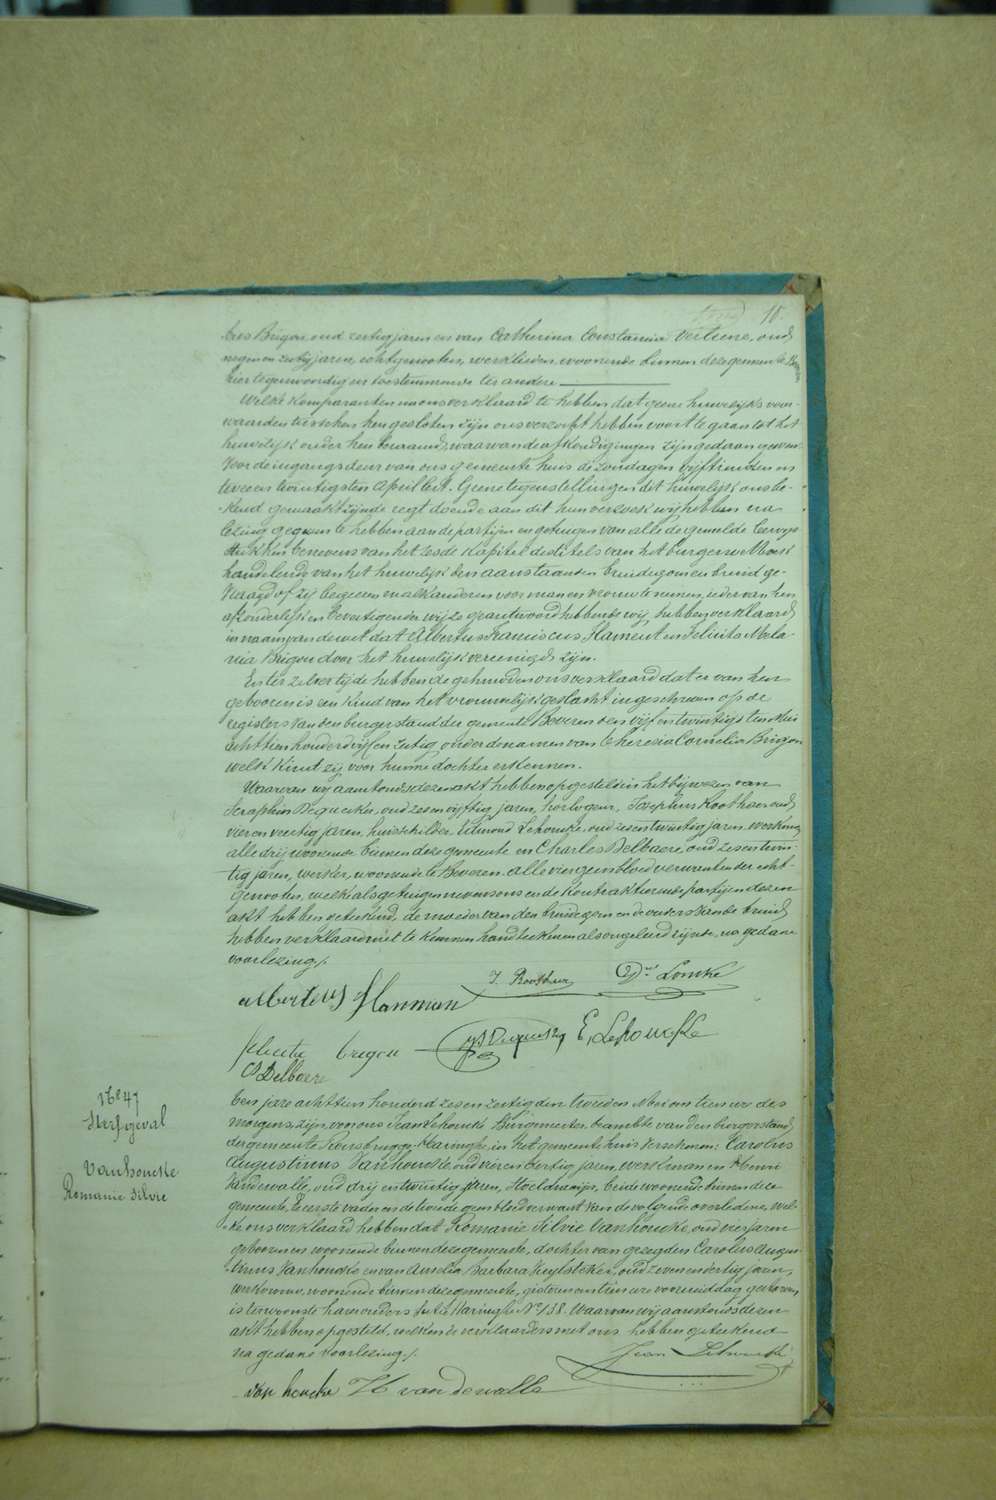 18.
Brigou oud zestig jaren en van Catherina Constancia Verliene, oud
negen en zestig jaren, echtgenooten, werklieden, woonende binnen deze gemeente
hier tegenwoordig en toestemmende ter andere
Welke komparanten na ons verklaard te hebben dat geene huwelijks voor-
waarden tusschen hen gesloten zijn ons verzocht hebben voort te gaan tot het
huwelijk onder hen beraamd, waarvan de afkondigingen zijn gedaan geweest
voor de ingangsdeur van ons gemeente huis de zondagen vijftienden en
twee en twintigsten April lest. Geene tegenstellingen dit huwelijk ons be-
kend gemaakt zijnde regt doende aan dit hun verzoek wij hebben na
lezing gegeven te hebben aan de partijen en getuigen van alle de gemelde bewys
stukken benevens van het zesde kapittel des titels van het burger wetboek
handelende van het huwelijk den aanstaanden bruidegom en bruid ge-
vraagd of zij begeeren malkanderen voor man en vrouw te nemen, ieder van hen
afzonderlijk en bevestigender wijze geantwoord hebbende wij hebben verklaard
in naam van de wet dat Albertus Franciscus Flament en Felicita Mela-
nia Brigou door het huwelijk vereenigd zijn.
En ter zelver tijde hebben de gehuwden ons verklaard dat er van hen
geboren is een kind van het vrouwelijk geslacht ingeschreven op de
registers van den burgerstand der gemeente Beveren den vijf en twintigsten
achttien honderd vijf en zestig onder de namen van Theresia Cornelia Brigou
welk kind zij voor hunne dochter erkennen.
Waarvan wij aanstonds dezen akt hebben opgesteld in het bijwezen van
Seraphin Dequecker, oud zes en vijftig jaren, horlogeur, Josephus Roothaer oud
vier en veertig jaren, huisschilder Edmond Lehoucke, oud zes en twintig jaren, werkman
alle drij woonende binnen deze gemeente en Charles Delbaere, oud zes en twin-
tig jaren, werker, woonende te Beveren alle vier geen bloedverwanten der echt-
genooten, welke als getuigen nevens ons en de kontrakteerende partijen dezen
akt hebben geteekend, de moeder van den bruidegom en de ouders van de bruid
hebben verklaard niet te kunnen handteekenen als ongeleerd zijnde, na gedane
voorlezing.
Albertus Flamment
J. Roothaer
felicita brigou
E. Lehoucke
C Delbaere
No 47
Sterfgeval
Vanhoucke
Romanie Silvie
Den jare achttien honderd zes en zestig den tweeden Mei om tien ure des
morgens, zijn voor ons Jean Lehoucke Burgmeester beambte van den burgerstand
der gemeente Rousbrugge-Haringhe in het gemeente huis verschenen: Carolus
Augustinus Vanhoucke oud vier en dertig jaren, werkman en Henri
Vandewalle, oud drij en twintig jaren, beide woonende binnen deze
gemeente, de eerste vader en de tweede geen bloedverwant van de volgende overledene, wel-
ke ons verklaard hebben dat Romanie Silvie Vanhoucke, oud vier jaren
geboren en woonende binnen deze gemeente, dochter van gezegden Carolus Augus-
tinus Vanhoucke en van Amelia Barbara Huyldecker, oud zeven en dertig jaren,
werkvrouw, woonende binnen deze gemeente, gisteren om tien ure voormiddag overleden
is ter woonste harer ouders sectie Haringhe No 158. Waarvan wij aanstonds dezen
akt hebben opgesteld, welken de verklaarders met ons hebben geteekend
na gedane voorlezing.
Jean Lehoucke
Van houcke H vandewalle